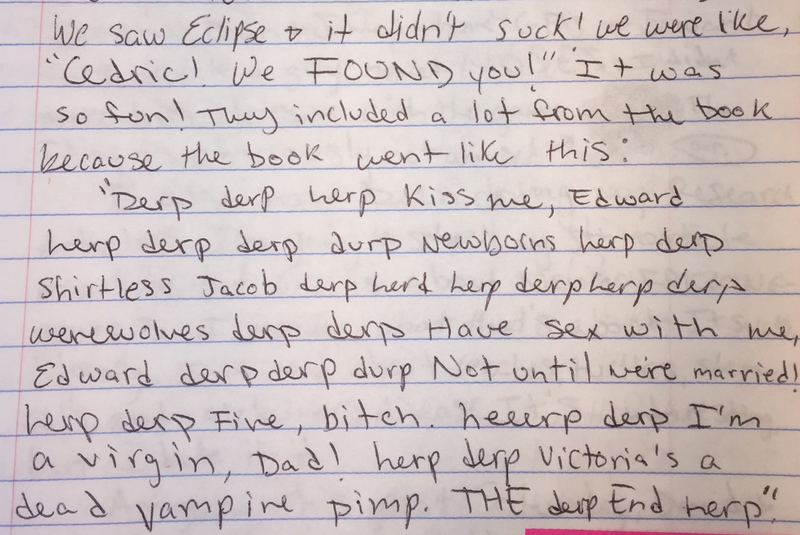 We saw Eclipse & it didn't suck! We were like,
"Cedric! We FOUND you!" It was
so fun! They included a lot from the book
because the book went like this:
"Derp derp herp Kiss me, Edward
herp derp derp durp Newborns herp derp
Shirtless Jacob derp herd herp derp herp derp
werewolves derp derp Have sex with me,
Edward derp derp durp Not until we're married!
herp derp Fine, bitch. heeerp derp I'm
a virgin, Dad! herp derp Victoria's a
dead vampire pimp. THE derp End herp".